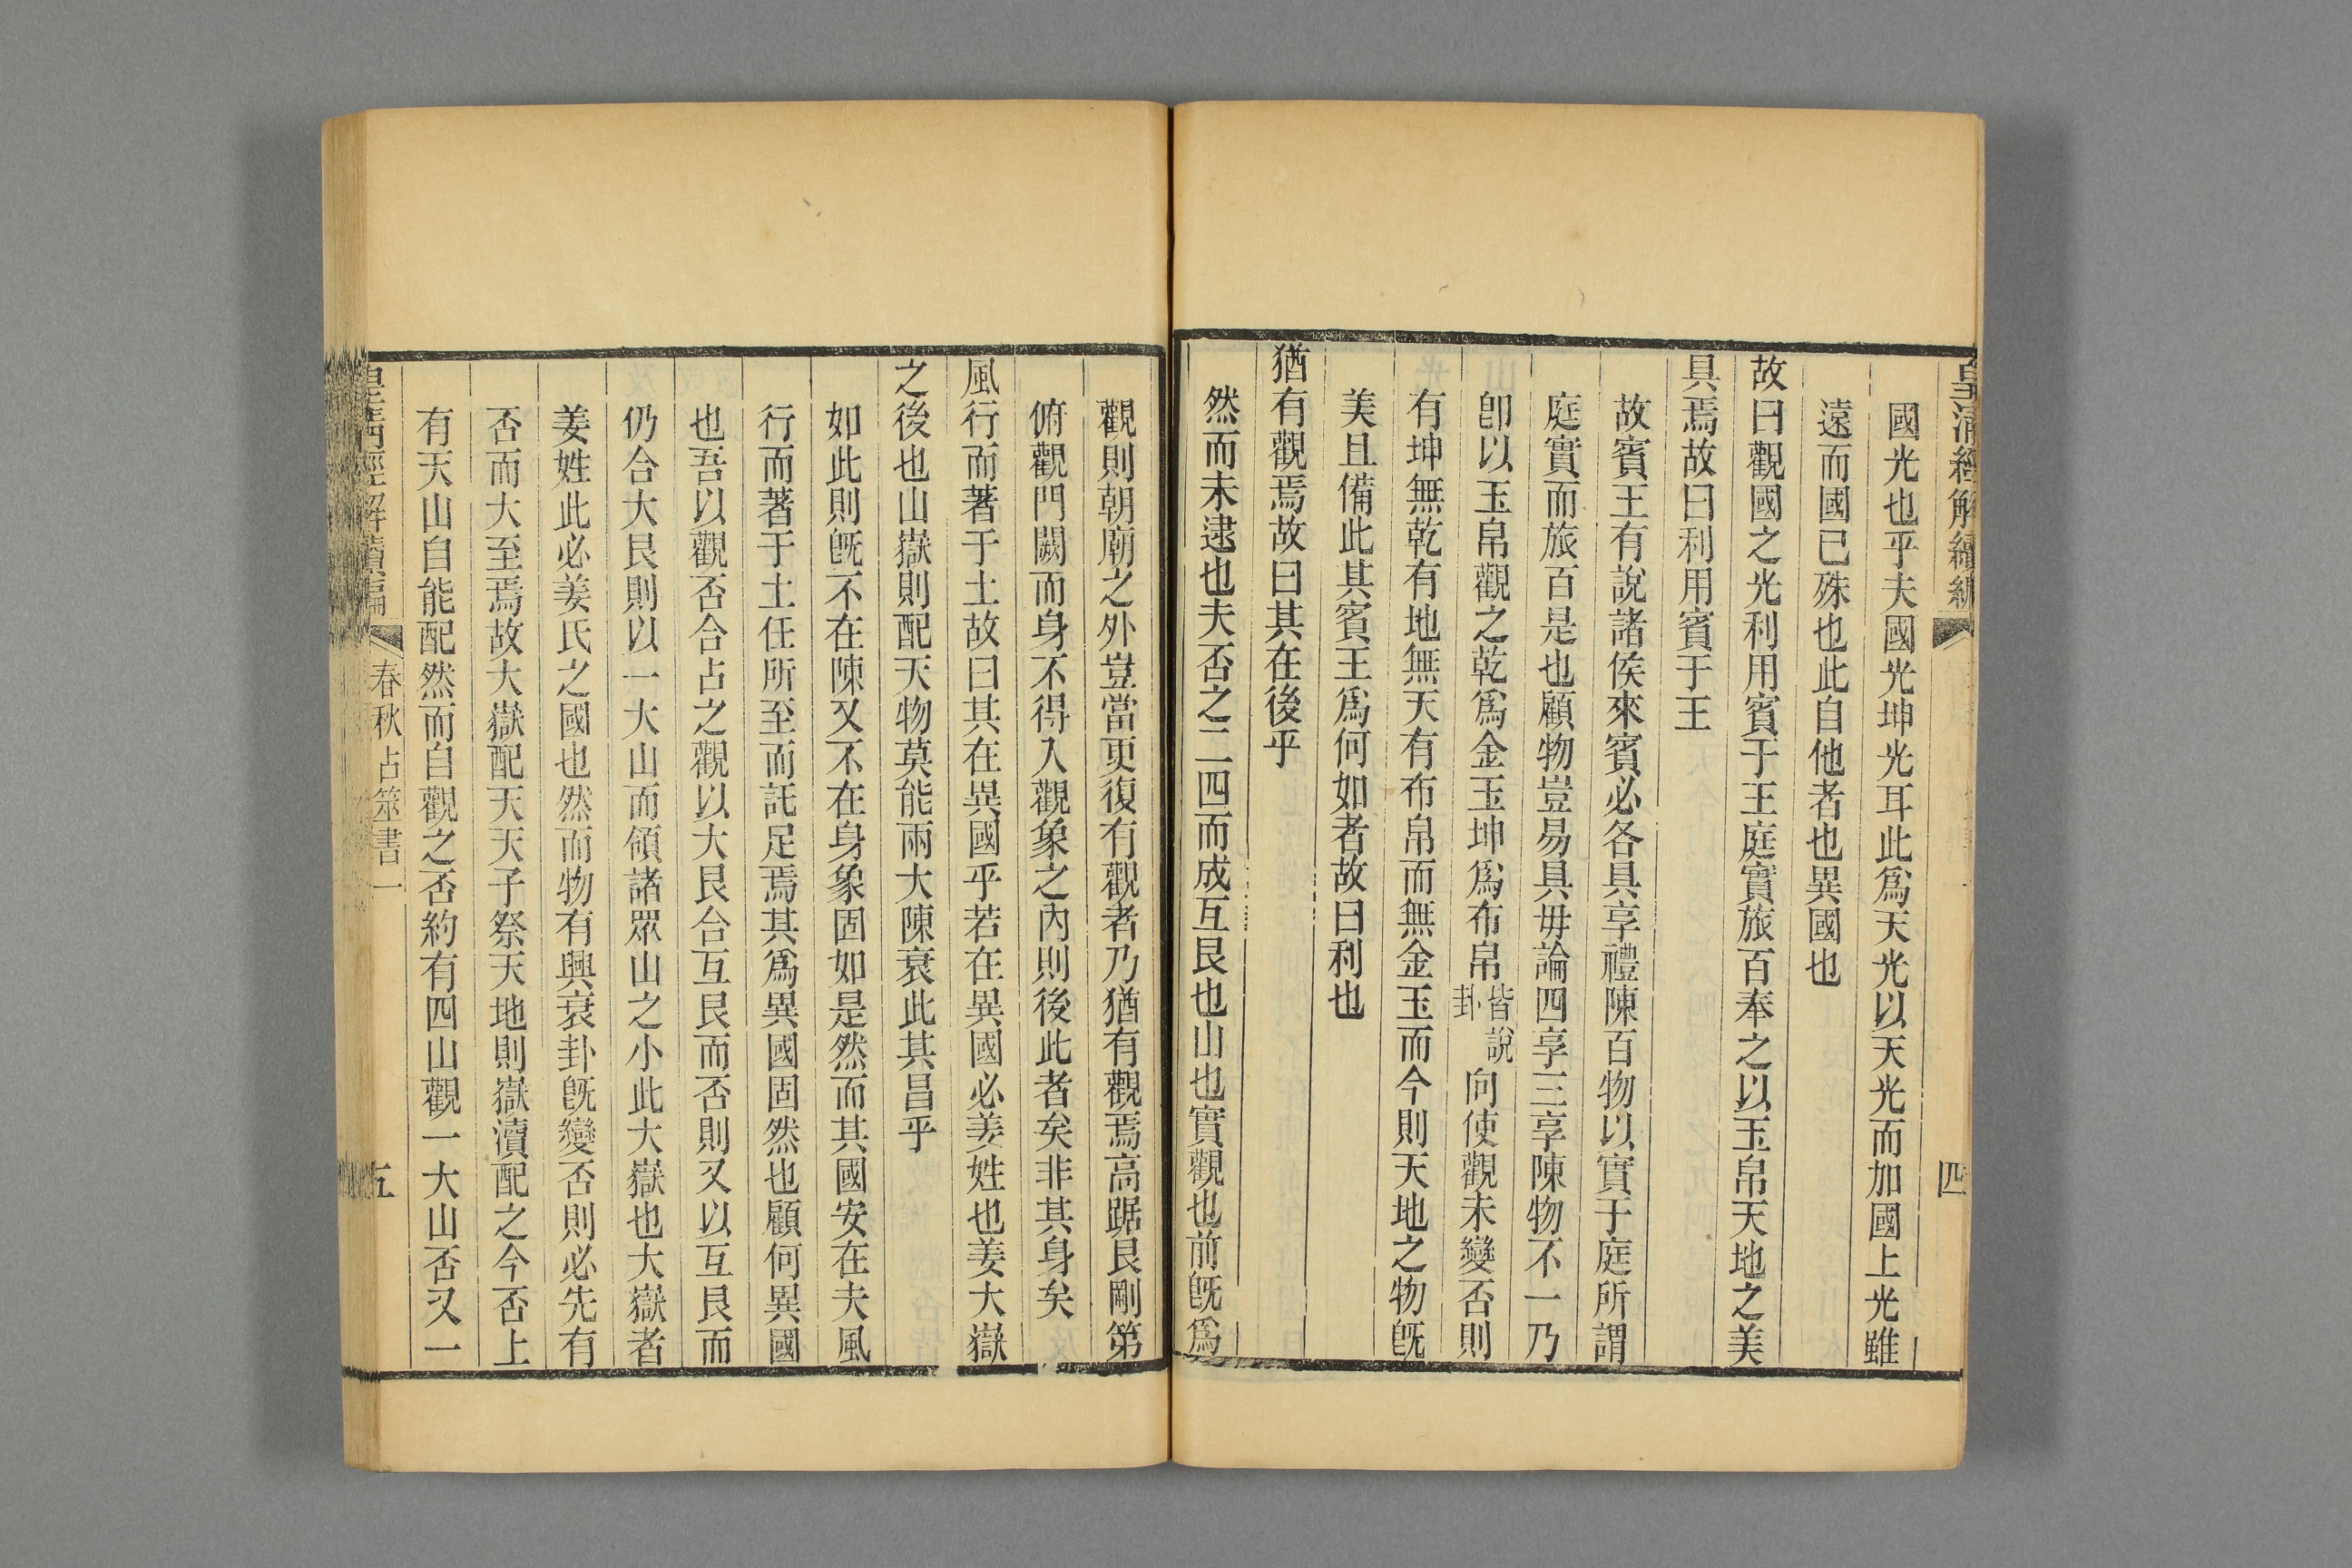 皇清經解續編
四
國光也乎夫國光坤光耳此爲天光以天光而加國上光雖
遠而國已殊也此自他者也異國也
故曰觀國之光利用賓于王庭實旅百奉之以玉帛天地之美
具焉故曰利用賓于王
故賓王有說諸侯來賓必各具享禮陳百物以實于庭所謂
庭實而旅百是也顧物豈易具毋論四享三享陳物不一乃
卽以玉帛觀之乾爲金玉坤爲布帛皆說卦向使觀未變否則
有坤無乾有地無天有布帛而無金玉而今則天地之物旣
美且備此其賓王爲何如者故曰利也
猶有觀焉故曰其在後乎
然而未逮也夫否之二四而成互艮也山也實觀也前旣爲
觀則朝廟之外豈當更復有觀者乃猶有觀焉高踞艮剛第
俯觀門闕而身不得入觀象之內則後此者矣非其身矣
風行而著于土故曰其在異國乎若在異國必姜姓也姜大嶽
之後也山嶽則配天物莫能兩大陳衰此其昌乎
如此則旣不在陳又不在身象固如是然而其國安在夫風
行而著于土任所至而託足焉其爲異國固然也顧何異國
也吾以觀否合占之觀以大艮合互艮而否則又以互艮而
仍合大艮則以一大山而領諸眾山之小此大嶽也大嶽者
姜姓此必姜氏之國也然而物有興衰卦旣變否則必先有
否而大至焉故大嶽配天天子祭天地則嶽瀆配之今否上
有天山自能配然而自觀之否約有四山觀一大山否又一
皇清經解續編
春秋占筮書一
五